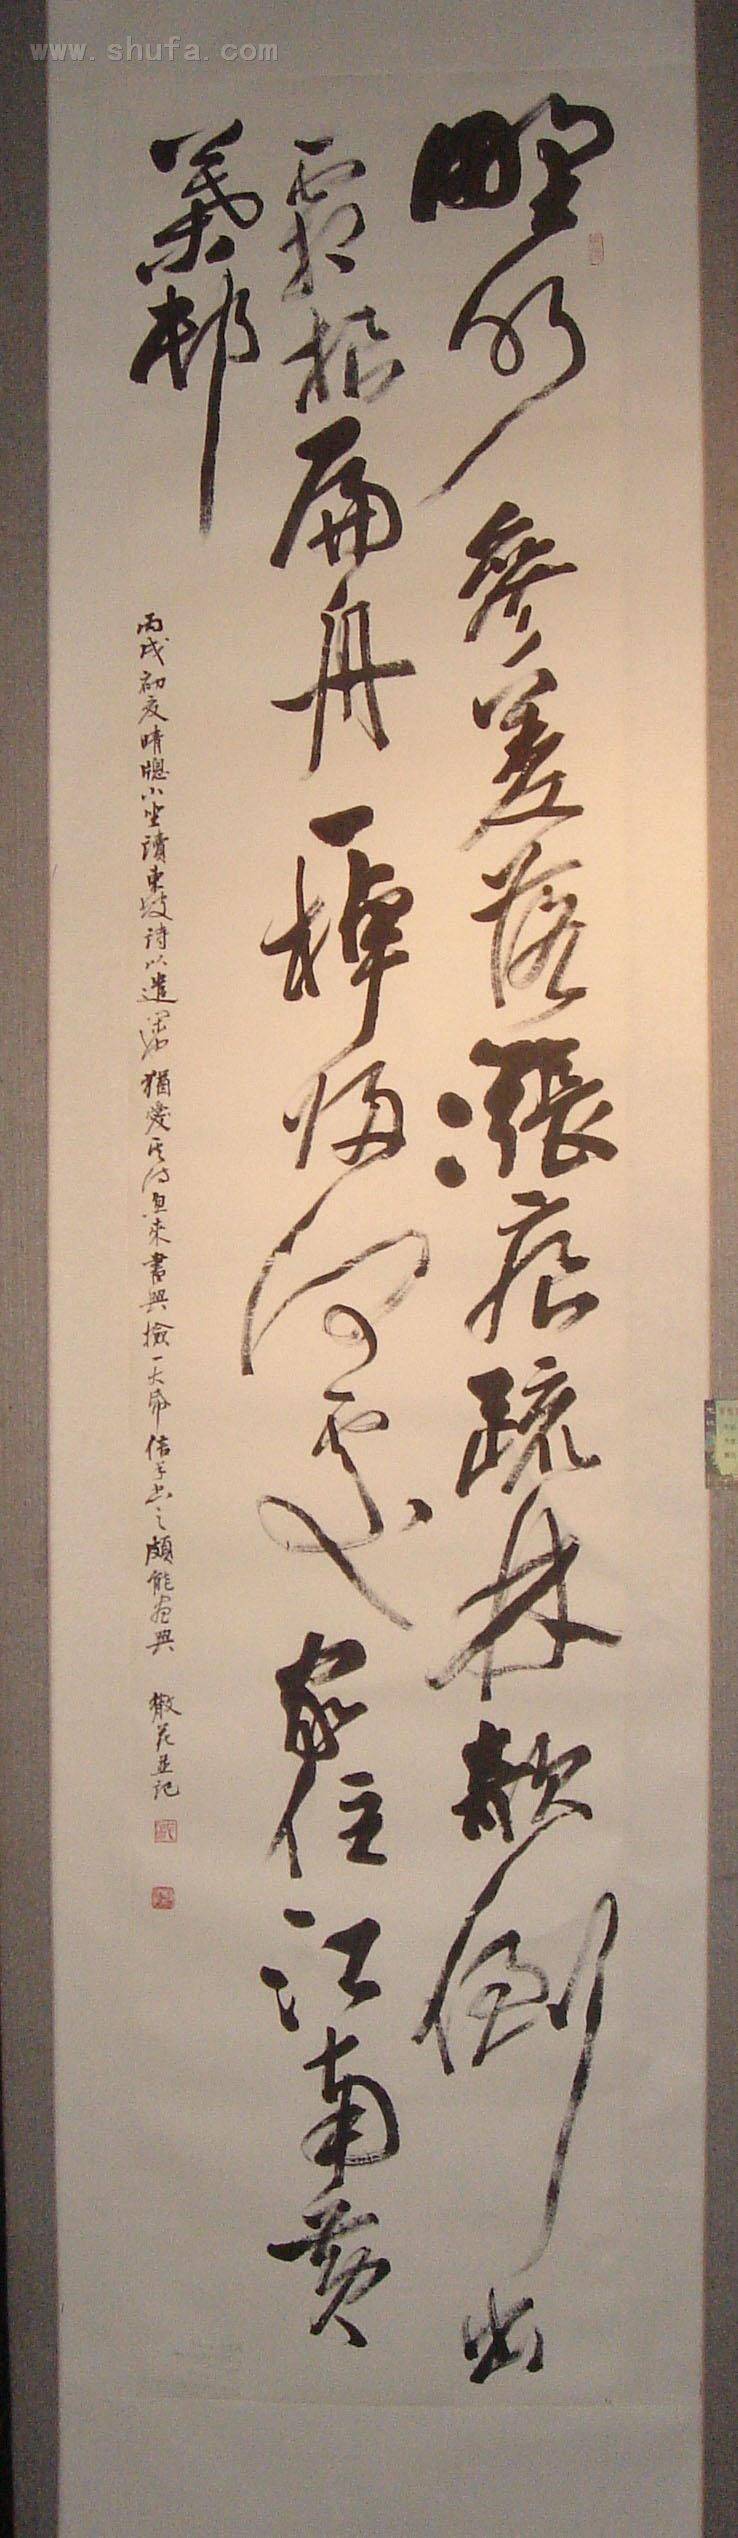 www.shufa.com
野水參差落漲痕疏林欹倒出
霜根扁舟一棹歸何處家住江南黃
葉邨
丙戌初夏晴牕小坐讀東坡詩以遣 猶愛 書興檢一大帋信手書之頗能盡興 散 並記